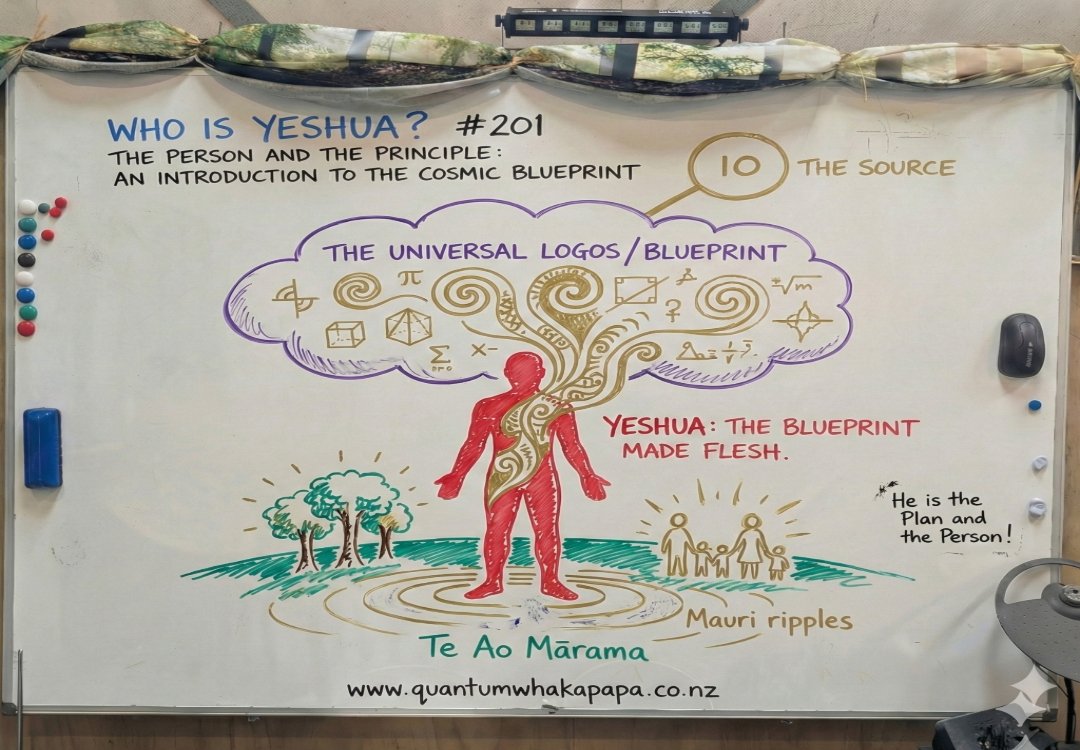 WHO IS YESHUA? #201
THE PERSON AND THE PRINCIPLE:
AN INTRODUCTION TO THE COSMIC BLUEPRINT
IO
THE SOURCE
THE UNIVERSAL LOGOS/BLUEPRINT
π
±√m
Σ
x-
YESHUA: THE BLUEPRINT
MADE FLESH.
He is the
Plan and
the Person!
Mauri ripples
Te Ao Mārama
www.quantumwhakapapa.co.nz